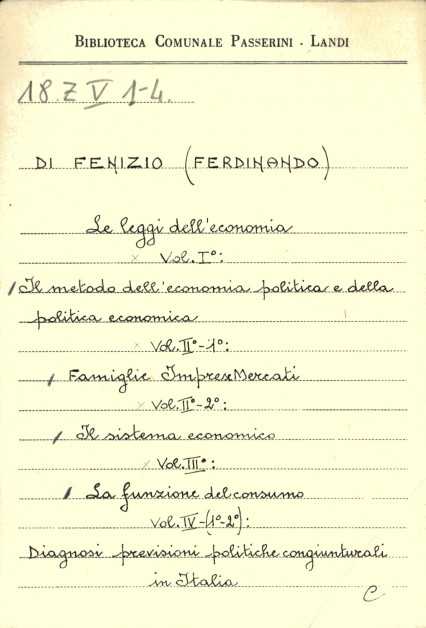 BIBLIOTECA COMUNALE PASSERINI - LANDI
18 Z V 1-4.
DI FENIZIO (FERDINANDO)
Le leggi dell'economia
Vol. I°:
Il metodo dell'economia politica e della
politica economica
Vol. II°-1°:
Famiglie Imprex Mercati
Vol. II°-2°:
Il sistema economico
Vol. III°:
La funzione del consumo
Vol. IV-(1°-2°):
Diagnosi previsioni politiche congiunturali
in Italia
C